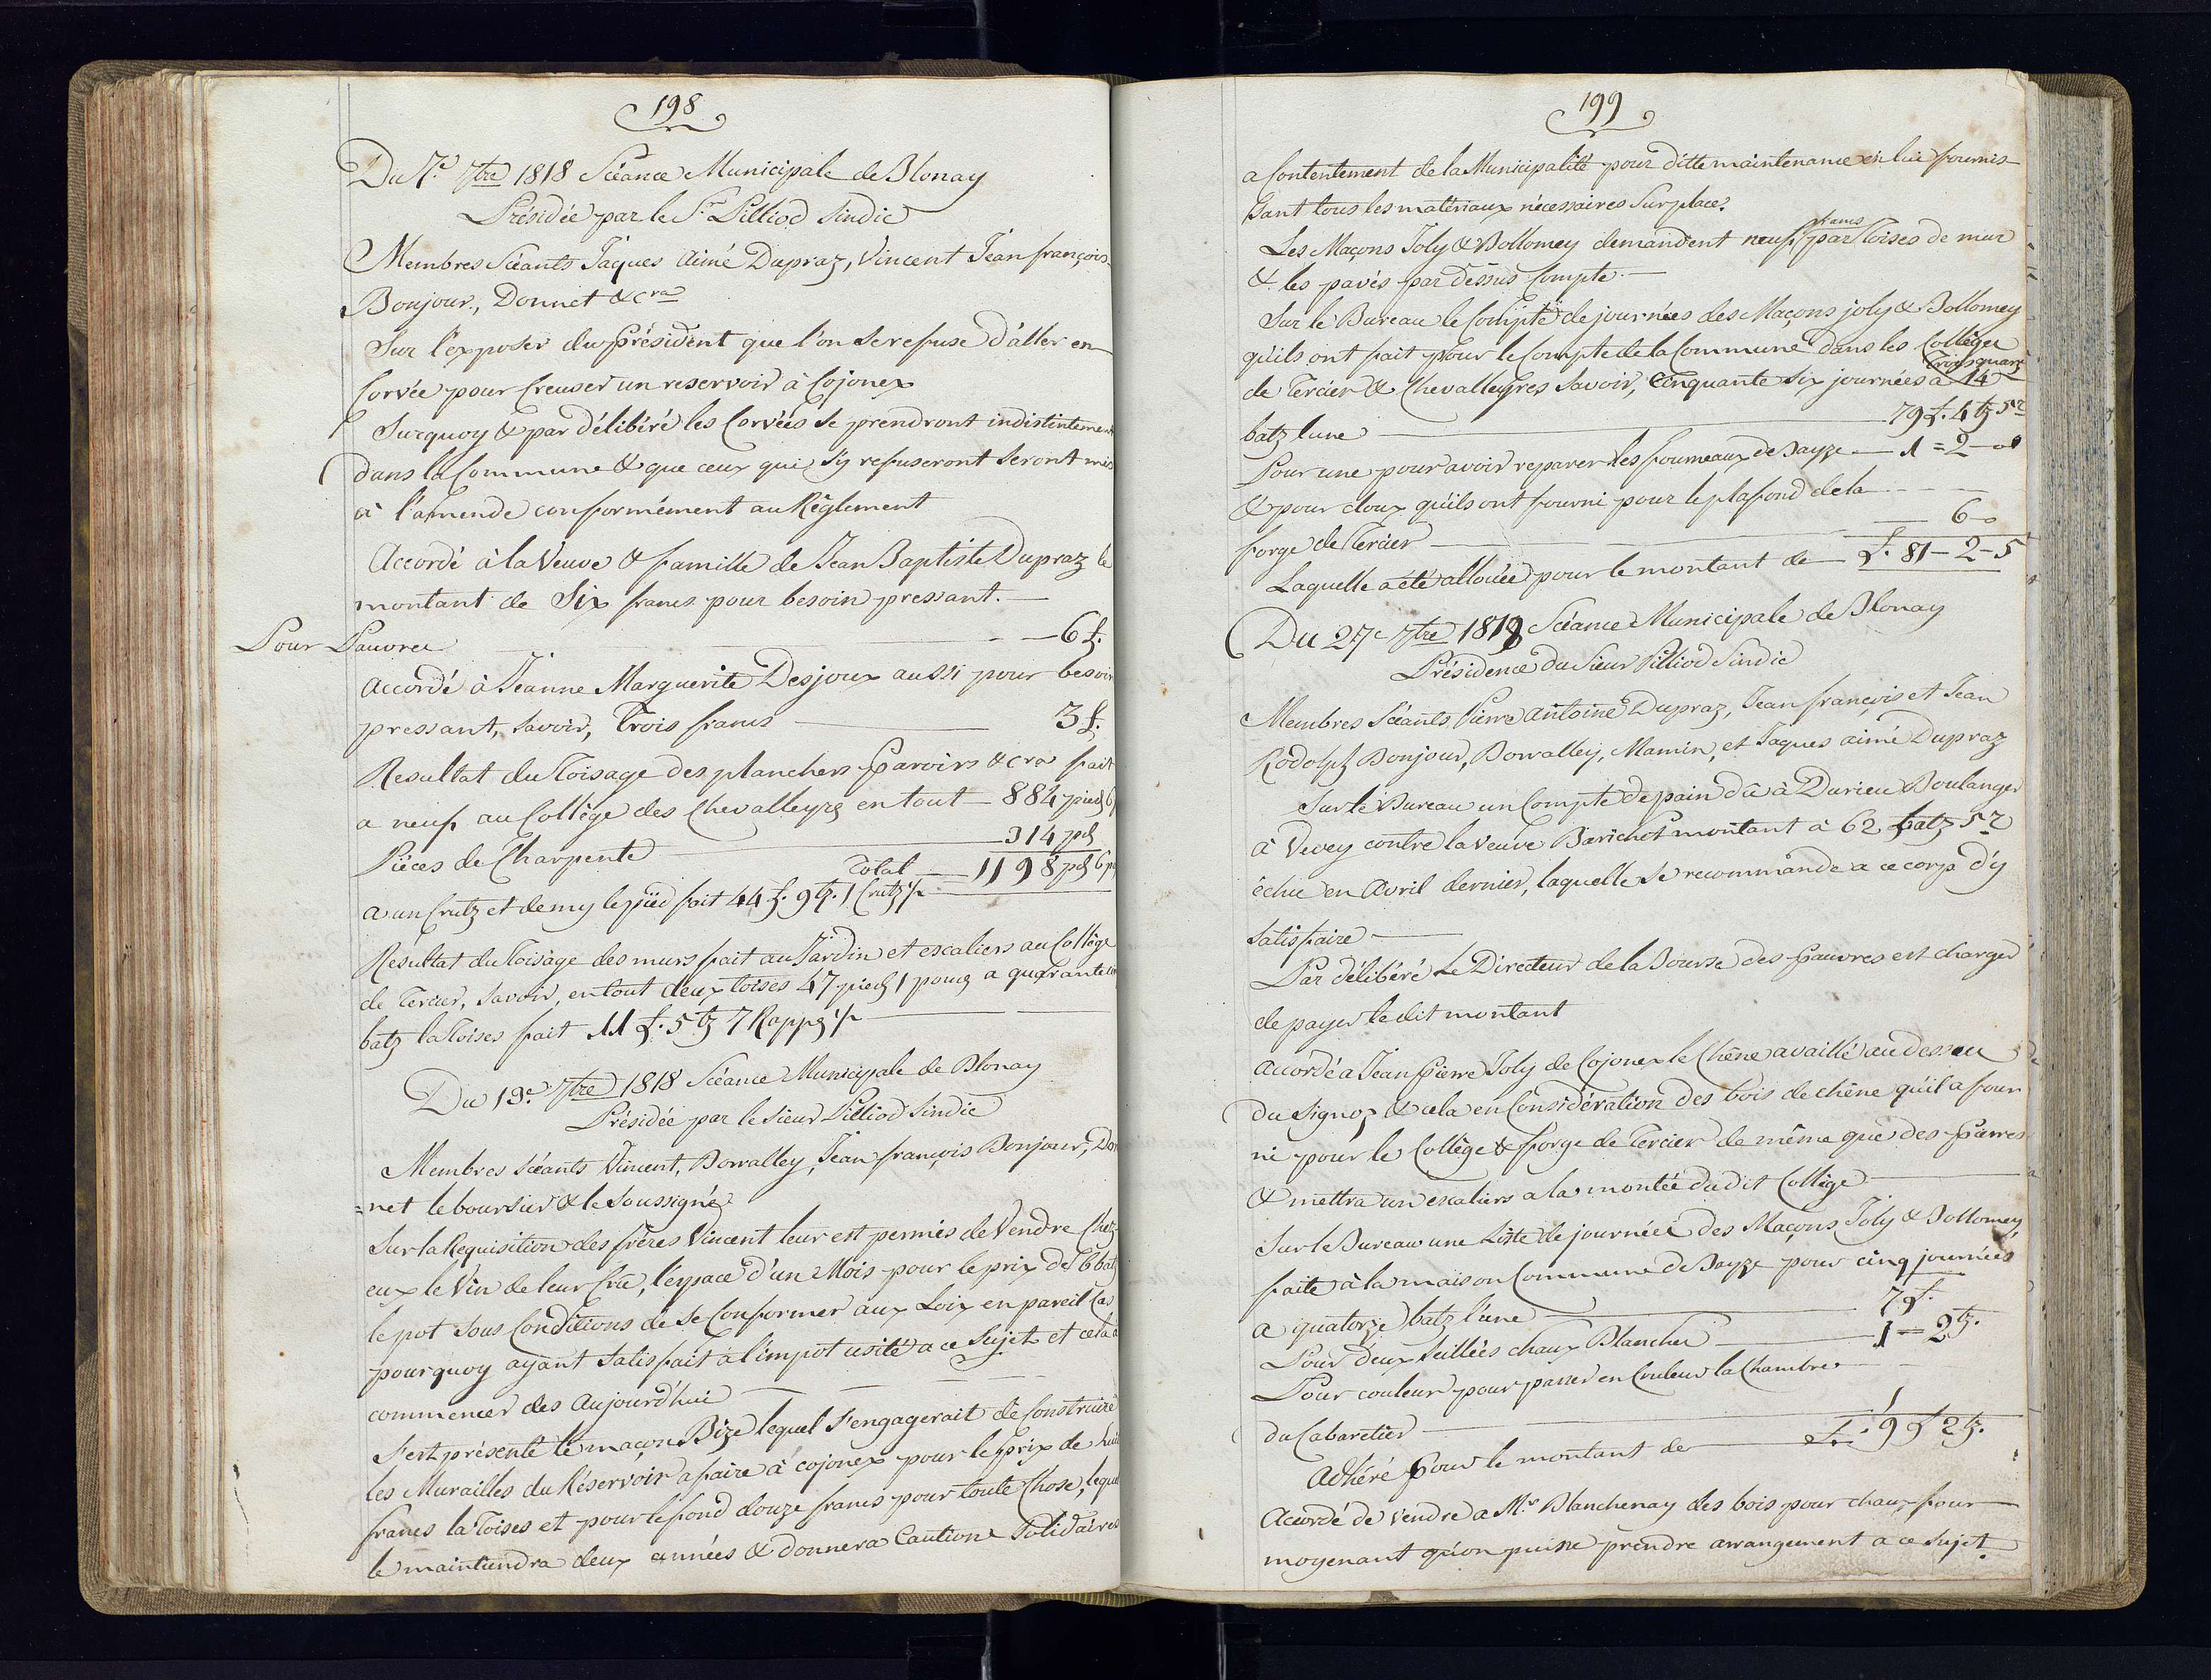 198
Du 7.e 7bre 1818 Scéance Municipale de Blonay
Présidée par le Sr Pilliod Sindic
Membres Scéants Jaques Aimé Dupraz, Vincent Jean françois
Bonjour, Donnet &cra
Sur l'exposer du président que l'on se refuse d'aller en
Corvée pour Creuser un reservoir à Cojonex
Surquoy & par délibéré les Corvées se prendront indistintement
dans la Commune & que ceux qui s'y refuseront seront mis
à l'amende conformément au Règlement
Accordé à la Veuve & famille de Jean Baptiste Dupraz le
montant de Six francs pour besoin pressant. —
Pour Pauvres — 6 f.
Accordé à Jeanne Marguerite Desjoux aussi pour besoin
pressant, savoir, trois francs — 3 f.
Resultat du Toisage des planchers parois &cra fait
a neuf au Collège des Chevalleyrs en tout — 884 pieds 6
Pièces de Charpente — 314 pds
Total — 1198 pds 6 p
a un Crutz et demy le pied fait 44 f. 9 tz. 1 Crutz ½
Résultat du Toisage des murs fait au Jardin et escaliers au Collège
de Tercier, savoir, en tout deux toises 47 pieds 1 pouce a quarante un
batz la Toises fait 11 f. 5 tz 7 Rapps ½
Du 19.e 7bre 1818 Scéance Municipale de Blonay
Présidée par le Sieur Pilliod Sindic
Membres Scéants Vincent, Bovvalley, Jean françois Bonjour, Don
=net le boursier & le Soussigné
Sur la Requisition des frères Vincent leur est permis de Vendre Chez
eux le Vin de leur Cru, l'espace d'un Mois pour le prix de 6 batz
le pot sous Conditions de se Conformer aux Loix en pareil Cas
pourquoy ayant Satisfait à l'impot usité a ce Sujet et cela a
commencer des Aujourd'hui
S'est présenté le maçon Bize lequel s'engagerait de Construire
les Murailles du Réservoir a faire à cojonex pour le prix de huit
francs la Toises et pour le fond douze francs pour toute Chose, lequel
le maintiendra deux années & donnera Caution Solidaire
199
a Contentement de la Municipalité pour ditte maintenance en lui fournis
sant tous les materiaux nécessaires Sur place.
francs
Les Maçons Joly & Dollomey demandent neuf par Toises de mur
& les pavés par dessus Compte. —
Sur le Bureau le Compte de journées des Maçons joly & Dollomey
qu'ils ont fait pour le Compte de la Commune dans les Collèges
Trois quart
de Tercier & Chevalleyres Savoir, Cinquante six journées a 14
batz l'une — 79 f. 4 tz 5 r
Pour une pour avoir reparer les fourneaux de Bayze — 1 = 2 — "
& pour cloux qu'ils ont fourni pour le plafond de la
forge de Tercier — 6 "
Laquelle a été allouée pour le montant de — f. 81 — 2 — 5
Du 27e 7bre 1818 Scéance Municipale de Blonay
Présidence du Sieur Pilliod Sindic
Membres Scéants Pierre antoine Dupraz, Jean françois et Jean
Rodolph Bonjour, Bovvalley, Mamin, et Jaques aimé Dupraz
Sur le Bureau un Compte de pain dû à Durieu Boulanger
à Vevey contre la Veuve Barichet montant à 62 batz 5 r
échue en Avril dernier, laquelle se recommande a ce corps d'y
satisfaire —
Par délibéré Le Directeur de la Bourse des pauvres est chargé
de payer le dit montant
Accordé a Jean Pierre Joly de Cojonex le Chêne availlé au dessous
du Signoz & cela en Considération des bois de chêne qu'il a four
ni pour le Collège & forge de Tercier de même que des Pierres
& mettra un escaliers a la montée du dit Collège —
Sur le Bureau une Liste de journées des Maçons Joly & Dollomey
faite à la maison Commune de Bayze pour cinq journées
a quatorze batz l'une — 7 f.
Pour deux seillées chaux Blanches — 1 = 2 tz.
Pour couleur pour passer en Couleur la Chambre
du Cabaretier — 1
Adhéré pour le montant de — f. 9 f 2 tz.
Accordé de vendre a Mr Blanchenay des bois pour chaux-four
moyenant qu'on puisse prendre arrangement a ce sujet.